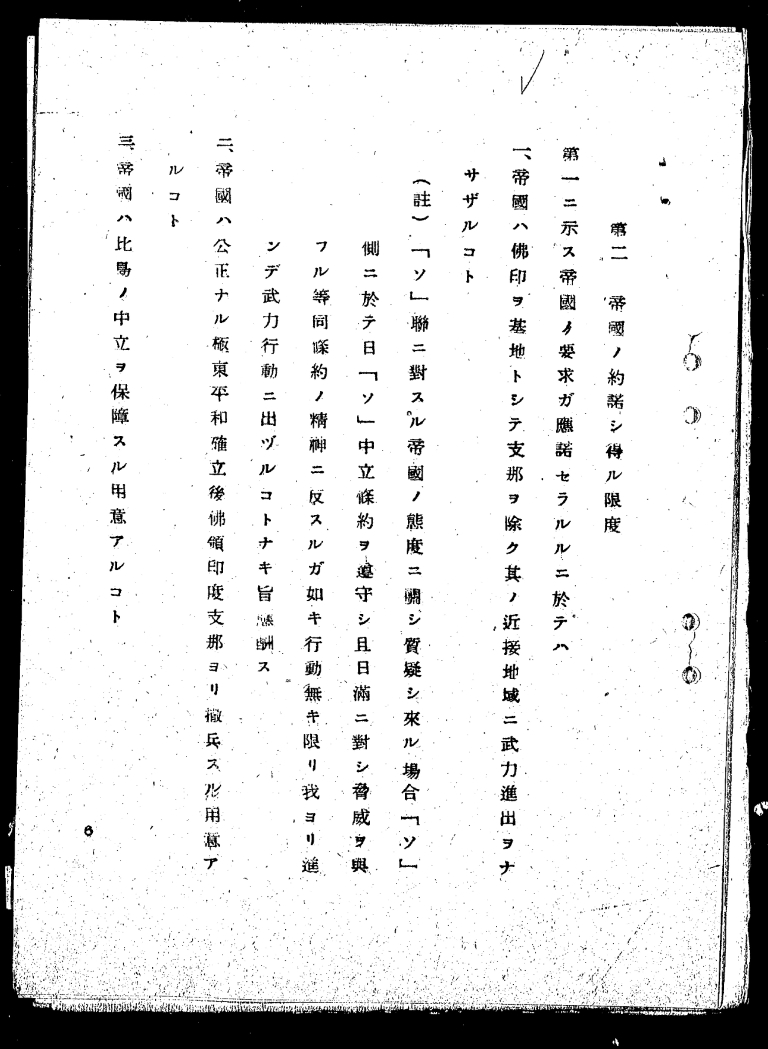 第二　帝國ノ約諾シ得ル限度
第一ニ示ス帝國ノ要求ガ應諾セラルルニ於テハ
一、帝國ハ佛印ヲ基地トシテ支那ヲ除ク其ノ近接地域ニ武力進出ヲナ
サザルコト
（註）「ソ」聯ニ對スル帝國ノ態度ニ關シ質疑シ來ル場合「ソ」
側ニ於テ日「ソ」中立條約ヲ遵守シ且日滿ニ對シ脅威ヲ與
フル等同條約ノ精神ニ反スルガ如キ行動無キ限リ我ヨリ進
ンデ武力行動ニ出ヅルコトナキ旨應酬ス
二、帝國ハ公正ナル極東平和確立後佛領印度支那ヨリ撤兵スル用意ア
ルコト
三、帝國ハ比島ノ中立ヲ保障スル用意アルコト
6